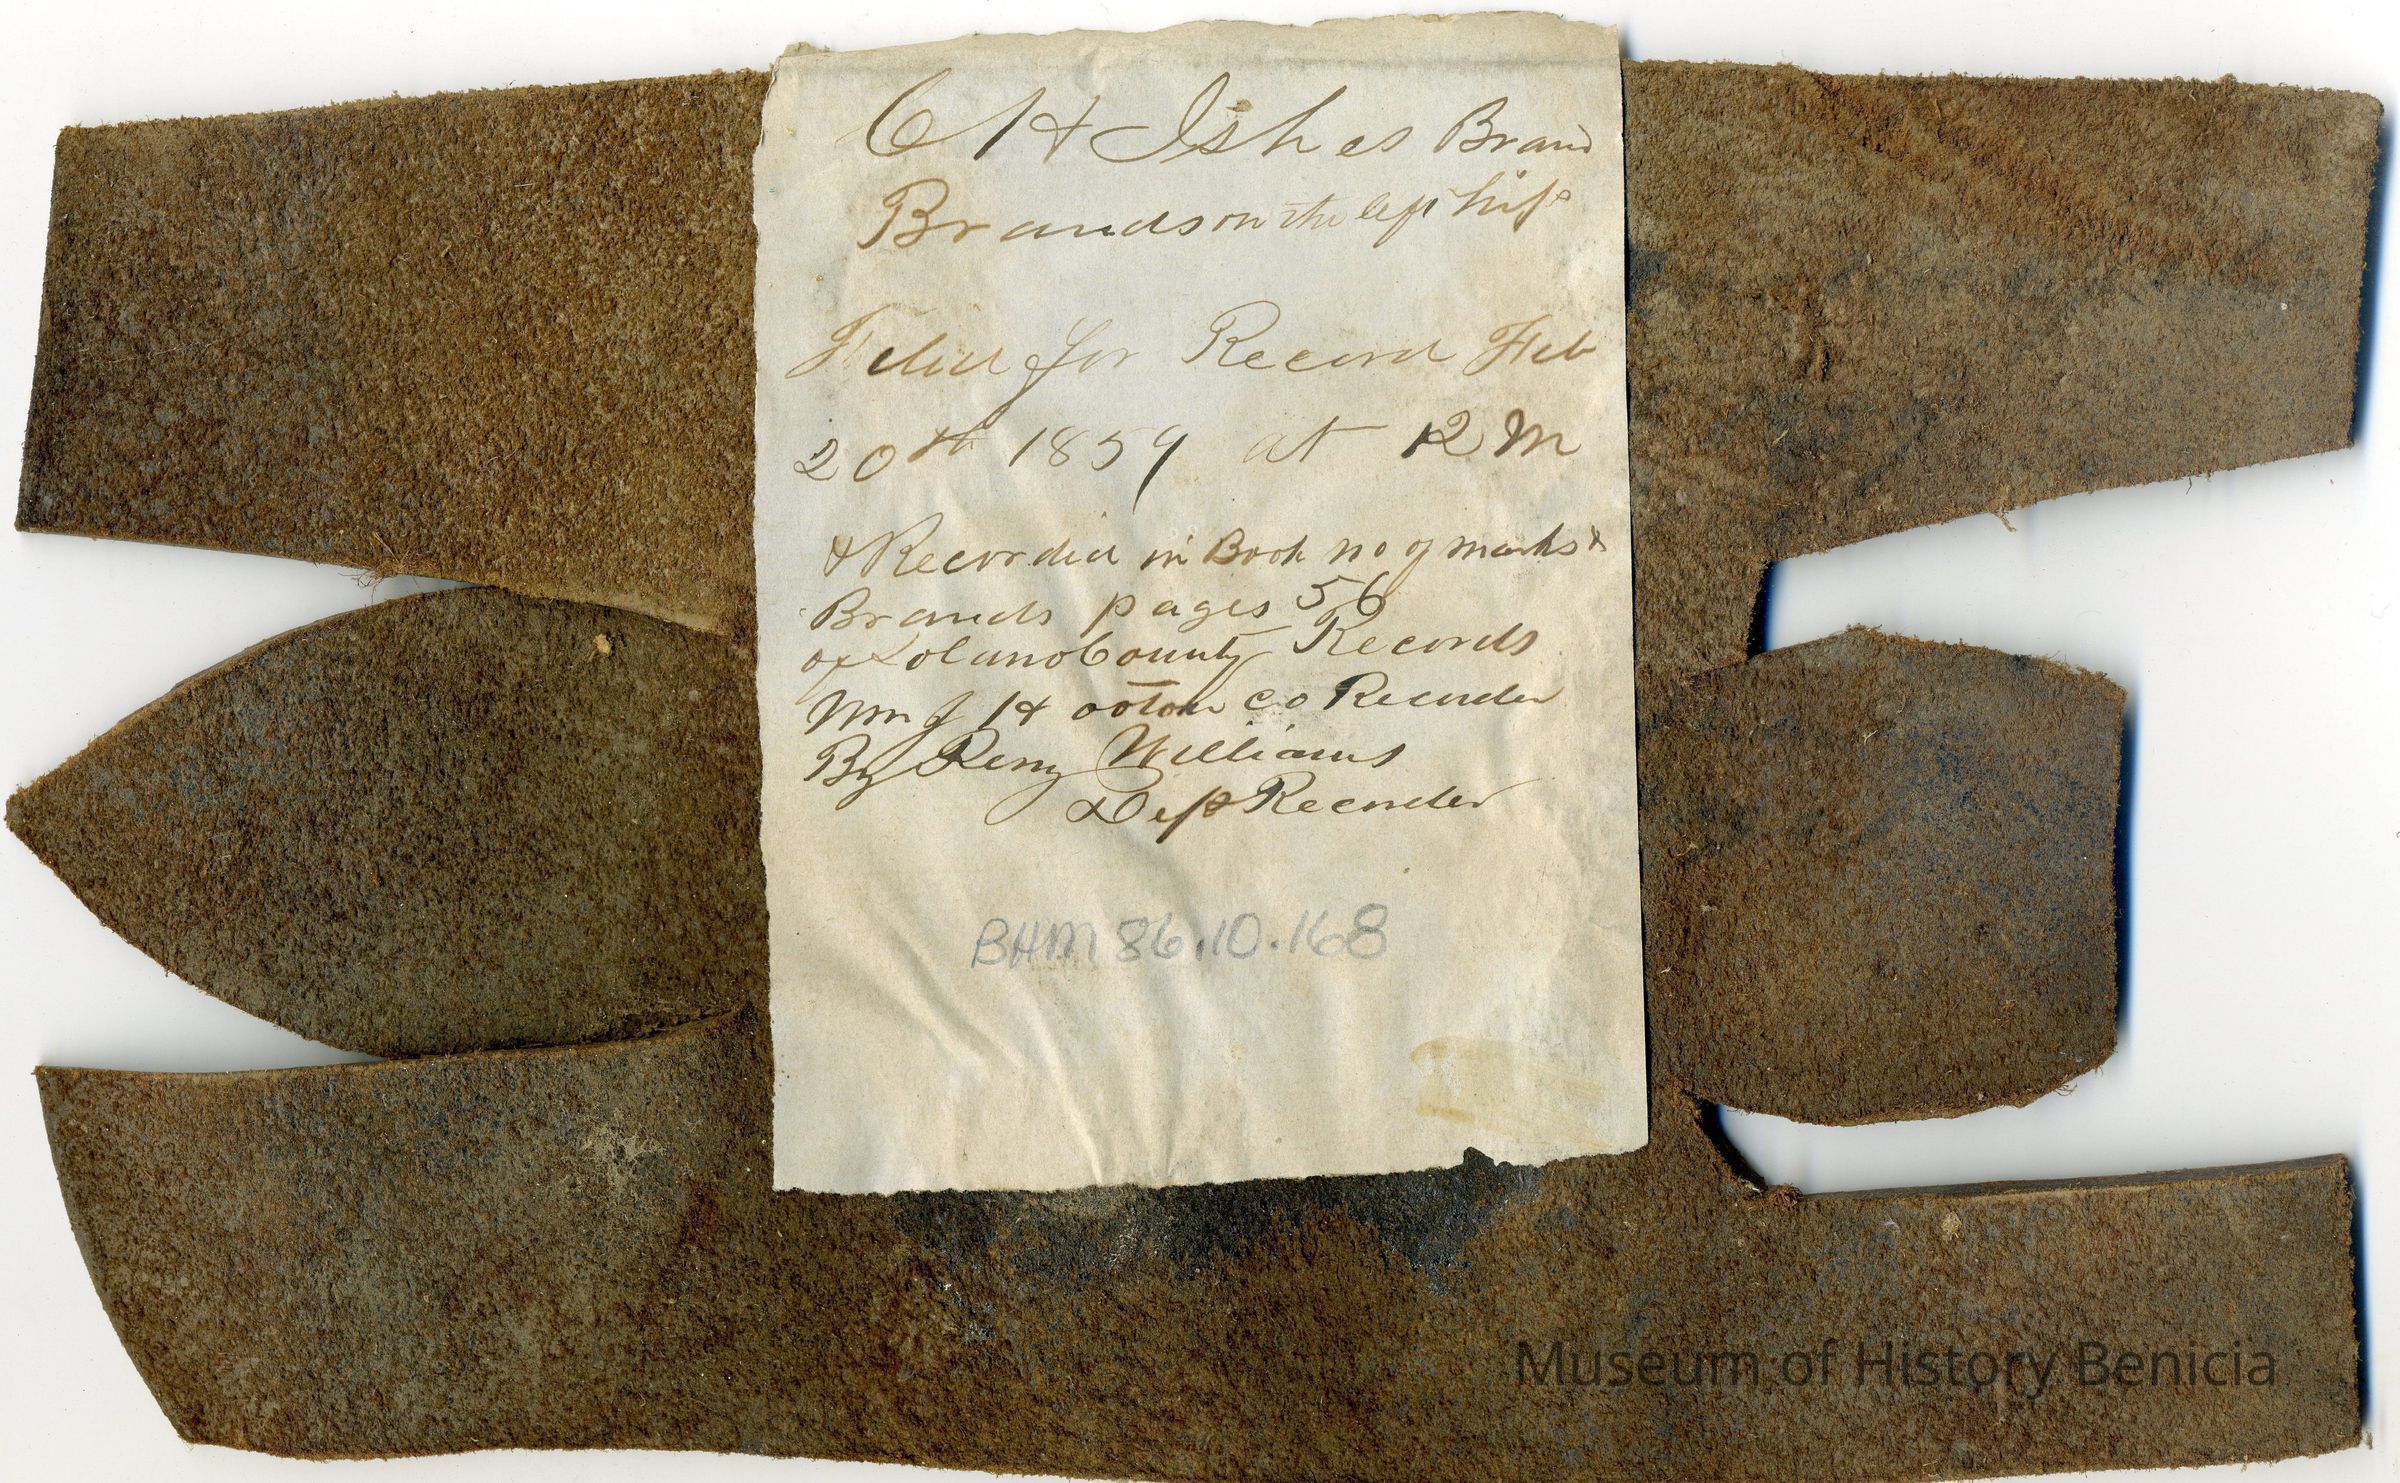 C H Ishes Brand
Brands on the left hip
Filed for Record Feb
20th 1859 at 12 M
& Recorded in Book no of marks &
Brands pages 56
of Solano County Records
Wm J Hooton Co Recorder
By Williams
Dep Recorder
BHM 86.10.168
Museum of History Benicia